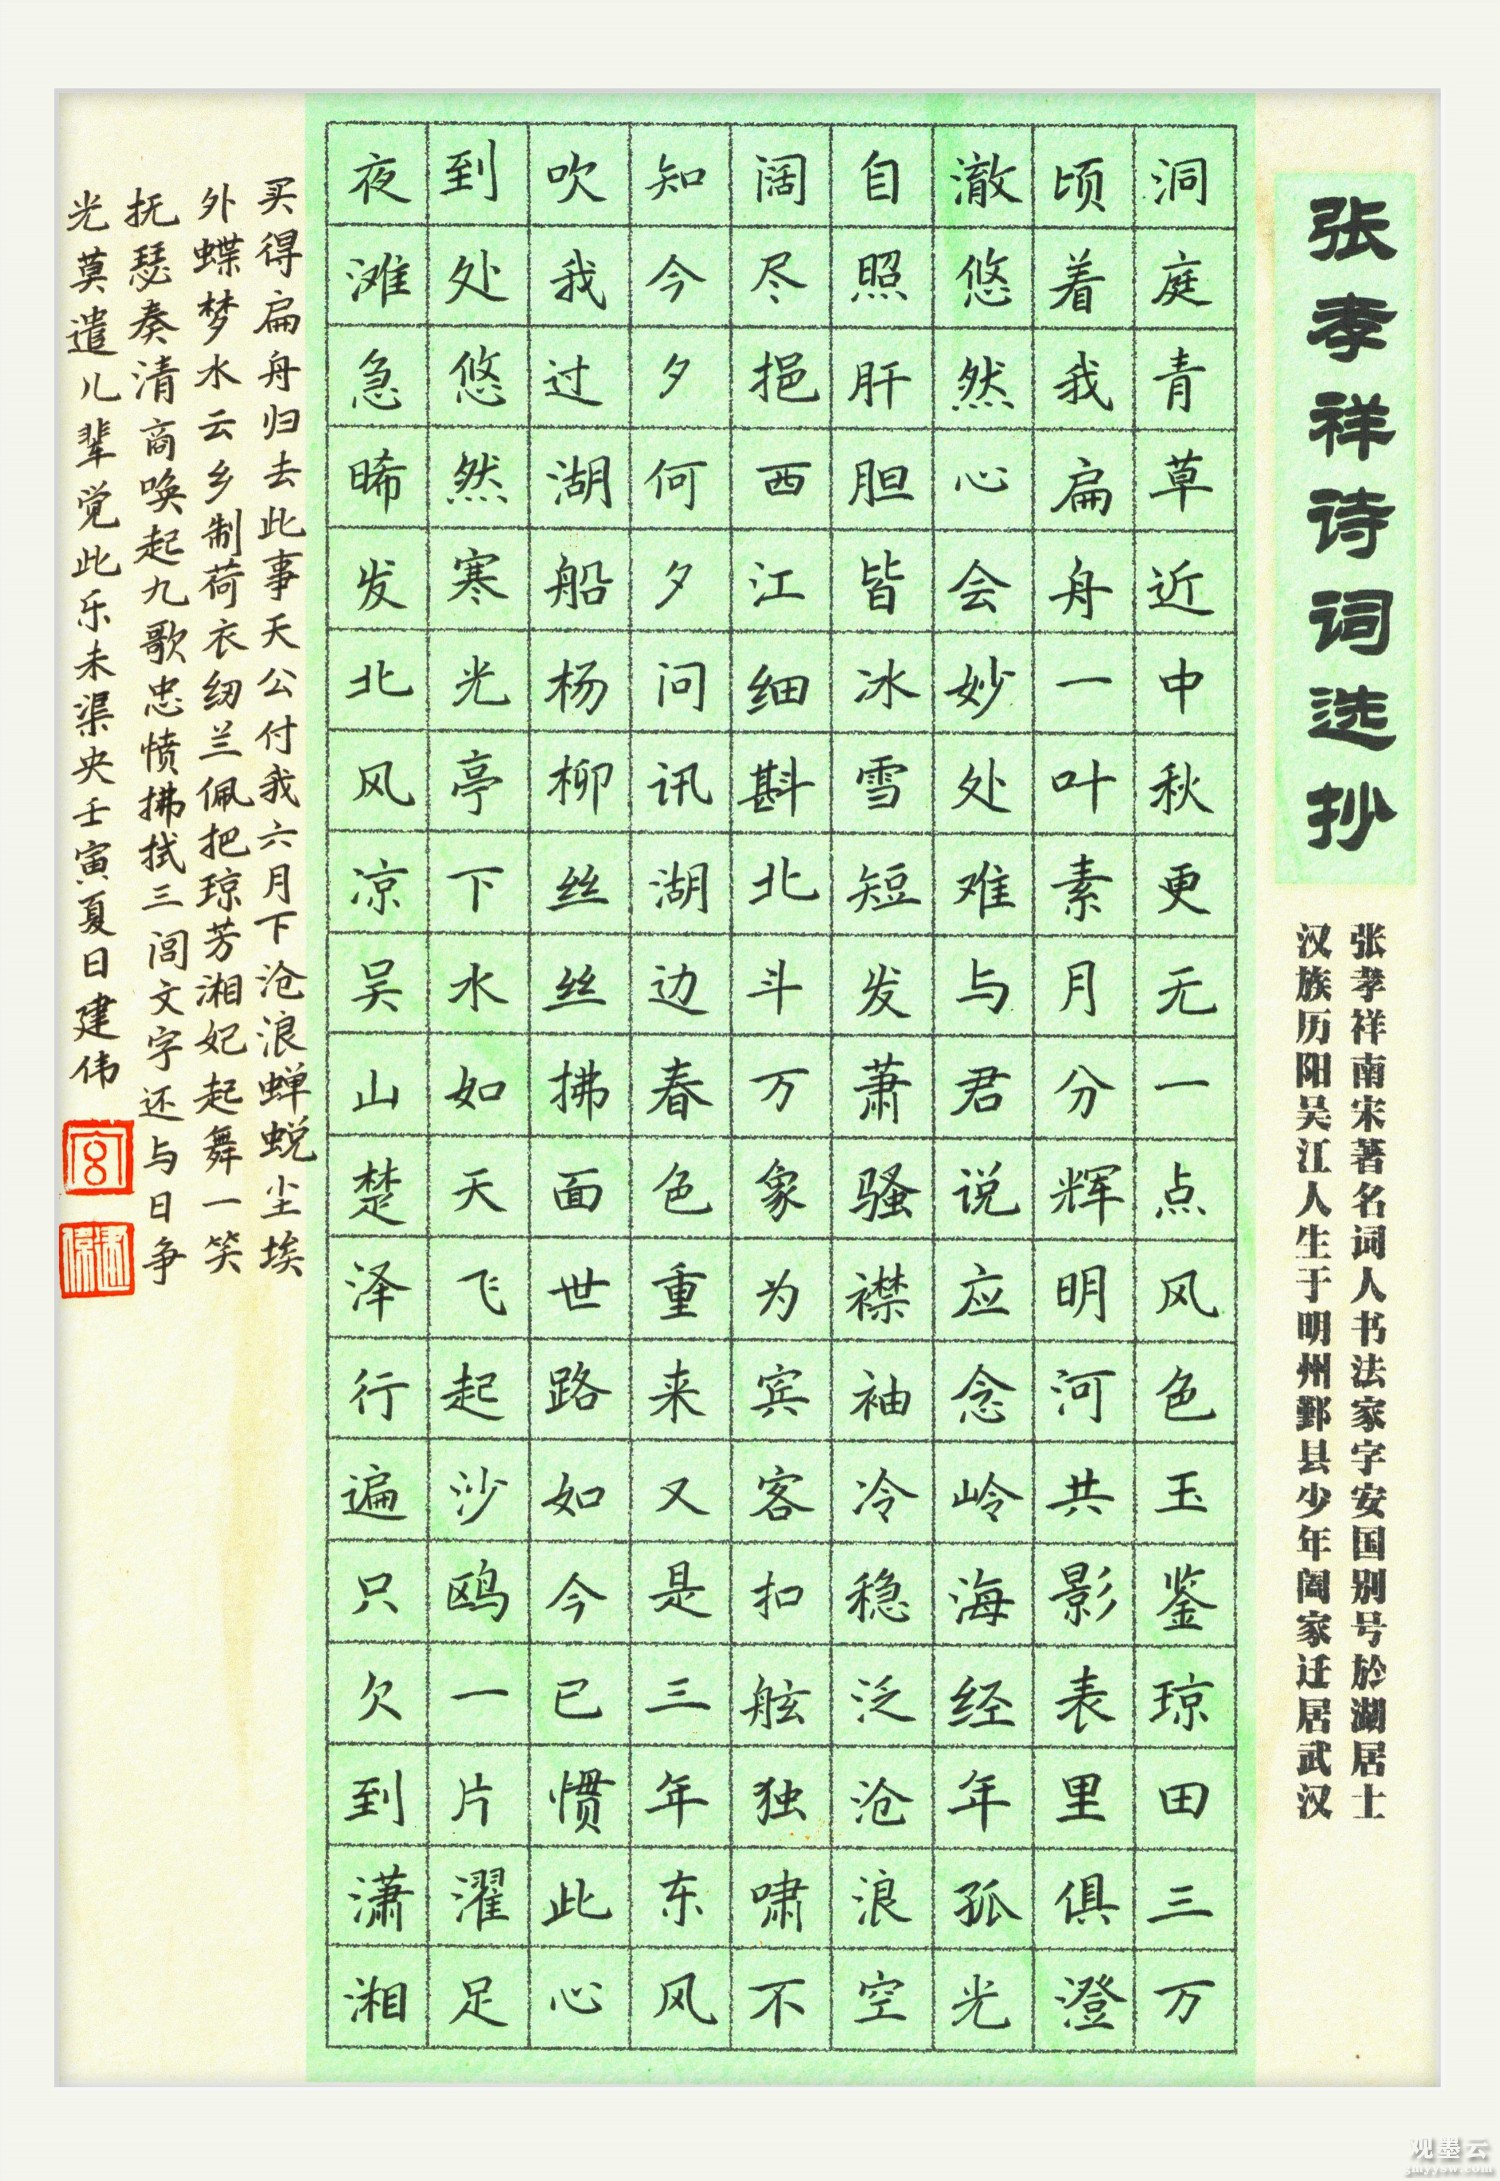 张孝祥诗词选抄
张孝祥南宋著名词人书法家字安国别号於湖居士
汉族历阳吴江人生于明州鄞县少年阖家迁居武汉
洞庭青草近中秋更无一点风色玉鉴琼田三万
顷着我扁舟一叶素月分辉明河共影表里俱澄
澈悠然心会妙处难与君说应念岭海经年孤光
自照肝胆皆冰雪短发萧骚襟袖冷稳泛沧浪空
阔尽挹西江细斟北斗万象为宾客扣舷独啸不
知今夕何夕问讯湖边春色重来又是三年东风
吹我过湖船杨柳丝丝拂面世路如今已惯此心
到处悠然寒光亭下水如天飞起沙鸥一片濯足
夜滩急晞发北风凉吴山楚泽行遍只欠到潇湘
买得扁舟归去此事天公付我六月下沧浪蝉蜕尘埃
外蝶梦水云乡制荷衣纫兰佩把琼芳湘妃起舞一笑
抚瑟奏清商唤起九歌忠愤拂拭三闾文字还与日争
光莫遣儿辈觉此乐未渠央壬寅夏日建伟
观墨云
gmyyow.com